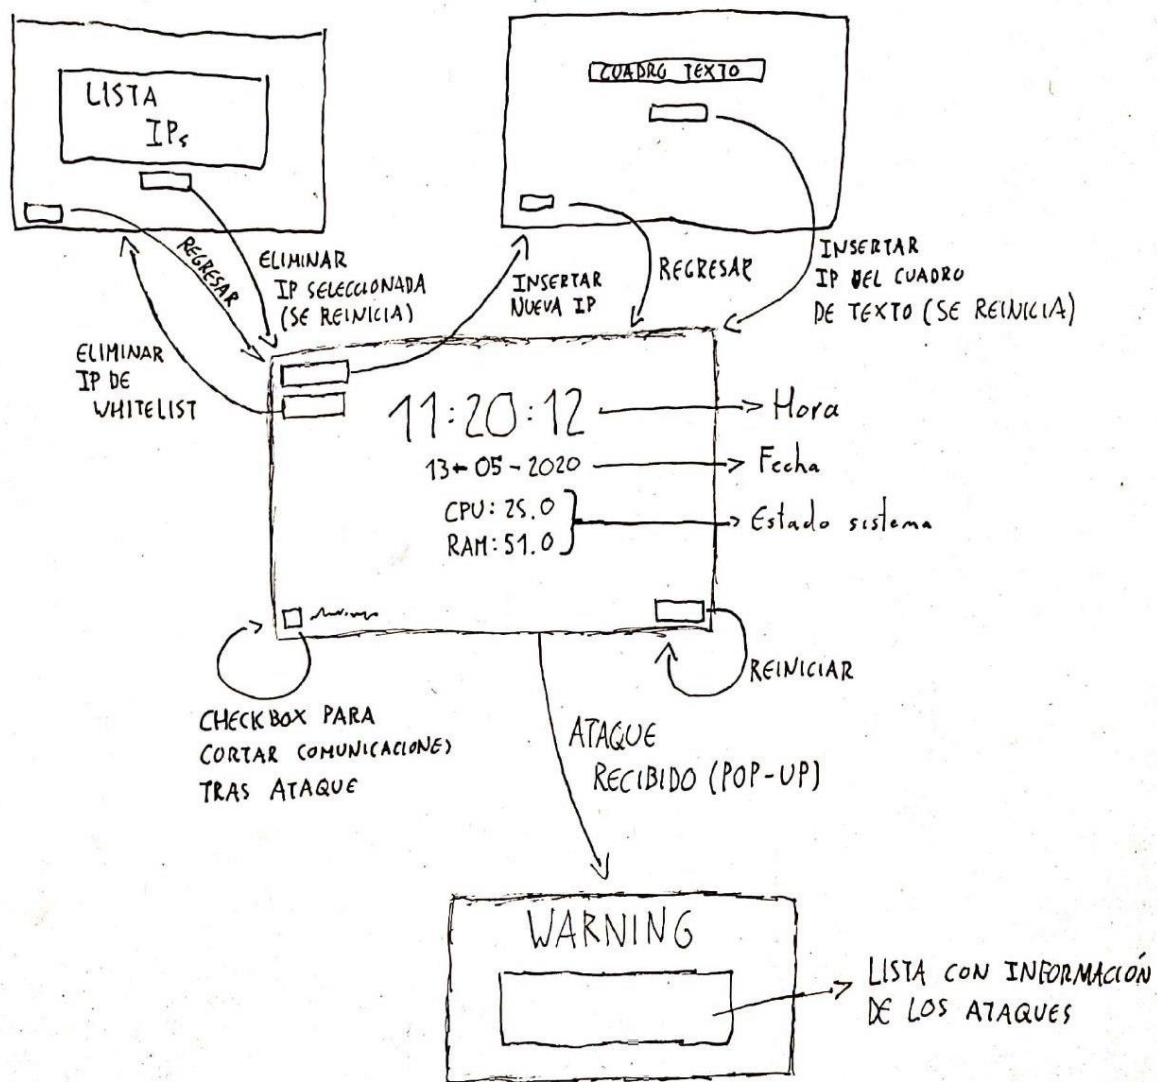 LISTA
IPs
CUADRO TEXTO
REGRESAR
ELIMINAR
IP SELECCIONADA
(SE REINICIA)
INSERTAR
NUEVA IP
REGRESAR
INSERTAR
IP DEL CUADRO
DE TEXTO (SE REINICIA)
ELIMINAR
IP DE
WHITELIST
11:20:12
Hora
13-05-2020
Fecha
CPU: 25.0
RAM: 51.0
Estado sistema
REINICIAR
CHECKBOX PARA
CORTAR COMUNICACIONES
TRAS ATAQUE
ATAQUE
RECIBIDO (POP-UP)
WARNING
LISTA CON INFORMACIÓN
DE LOS ATAQUES